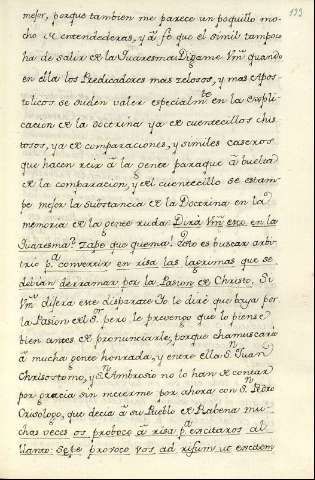 193
mejor, porque tambien me parece un poquillo mo-
cho de entendederas, y â fê que el simil tampoco
ha de salir de la Quaresma: Digame Vmd. quando
en ella los Predicadores mas zelosos, y mas Apos-
tolicos se suelen valer especialmte. en la expli-
cacion de la doctrina ya de cuentecillos chis
tosos, ya de comparaciones, y similes caseros
que hacen reir â la gente paraque â buelta
de la comparacion, y del cuentecillo se estam-
pe mejor la substancia de la Doctrina en la
memoria de la gente ruda: Dirâ Vmd. esto en la
Quaresma? Zape que quema! Esto es buscar arbi-
trio pa. convertir en risa las lagrimas que se
debian derramar por la Pasion de Christo. Si
Vmd. dijera ese disparate Yo le dirê que baya por
la Pasion del Sr. pero le prevengo que lo piense
bien antes de pronunciarle, porque chamuscarâ
â mucha gente honrada, y entre ella Sn. Juan
Chrisostomo, y Sn. Ambrosio no lo han de contar
por gracia sin meterme por ahora con Sn. Pedro
Crisologo, que decia â su Pueblo de Rabena mu-
chas veces os proboco â risa pa. excitaros al
llanto: Sepe provoco vos ad risum, ut excitem